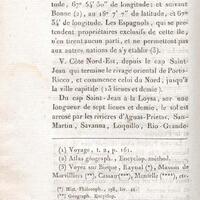 tude, 67° 54' 50" de longitude: et suivant
Bonne (2), au 16° 7' 7" de latitude, et
54' de longitude. Les Espagnols, qui se pré-
tendent propriétaires exclusifs de cette île,
n'en tirent aucun parti, et ne permettent pas
aux autres nations de s'y établir (3).
V. Côte Nord-Est, depuis le cap Saint-
Jean qui termine le rivage oriental de Porto-
Ricco, et commence celui du Nord, jusqu'à
la ville capitale (13 lieues et demie).
Du cap Saint-Jean à la Loysa, sur une
longueur de sept lieues et demie, le sol est
arrosé par les rivières d'Aguas-Prietas, San-
Martin, Savanna, Loquillo, Rio-Grande
(1) Voyage, t. 2, p. 161.
(2) Atlas géograph., Encyclop. méthod.
(3) Voyez sur Bieque, Raynal (*), Masson de
Morvilliers (**), Cassan (***), Mentelle (****), etc.
(*) Hist. Philosoph., 178, liv.
(**) Géograph. Encyclop.